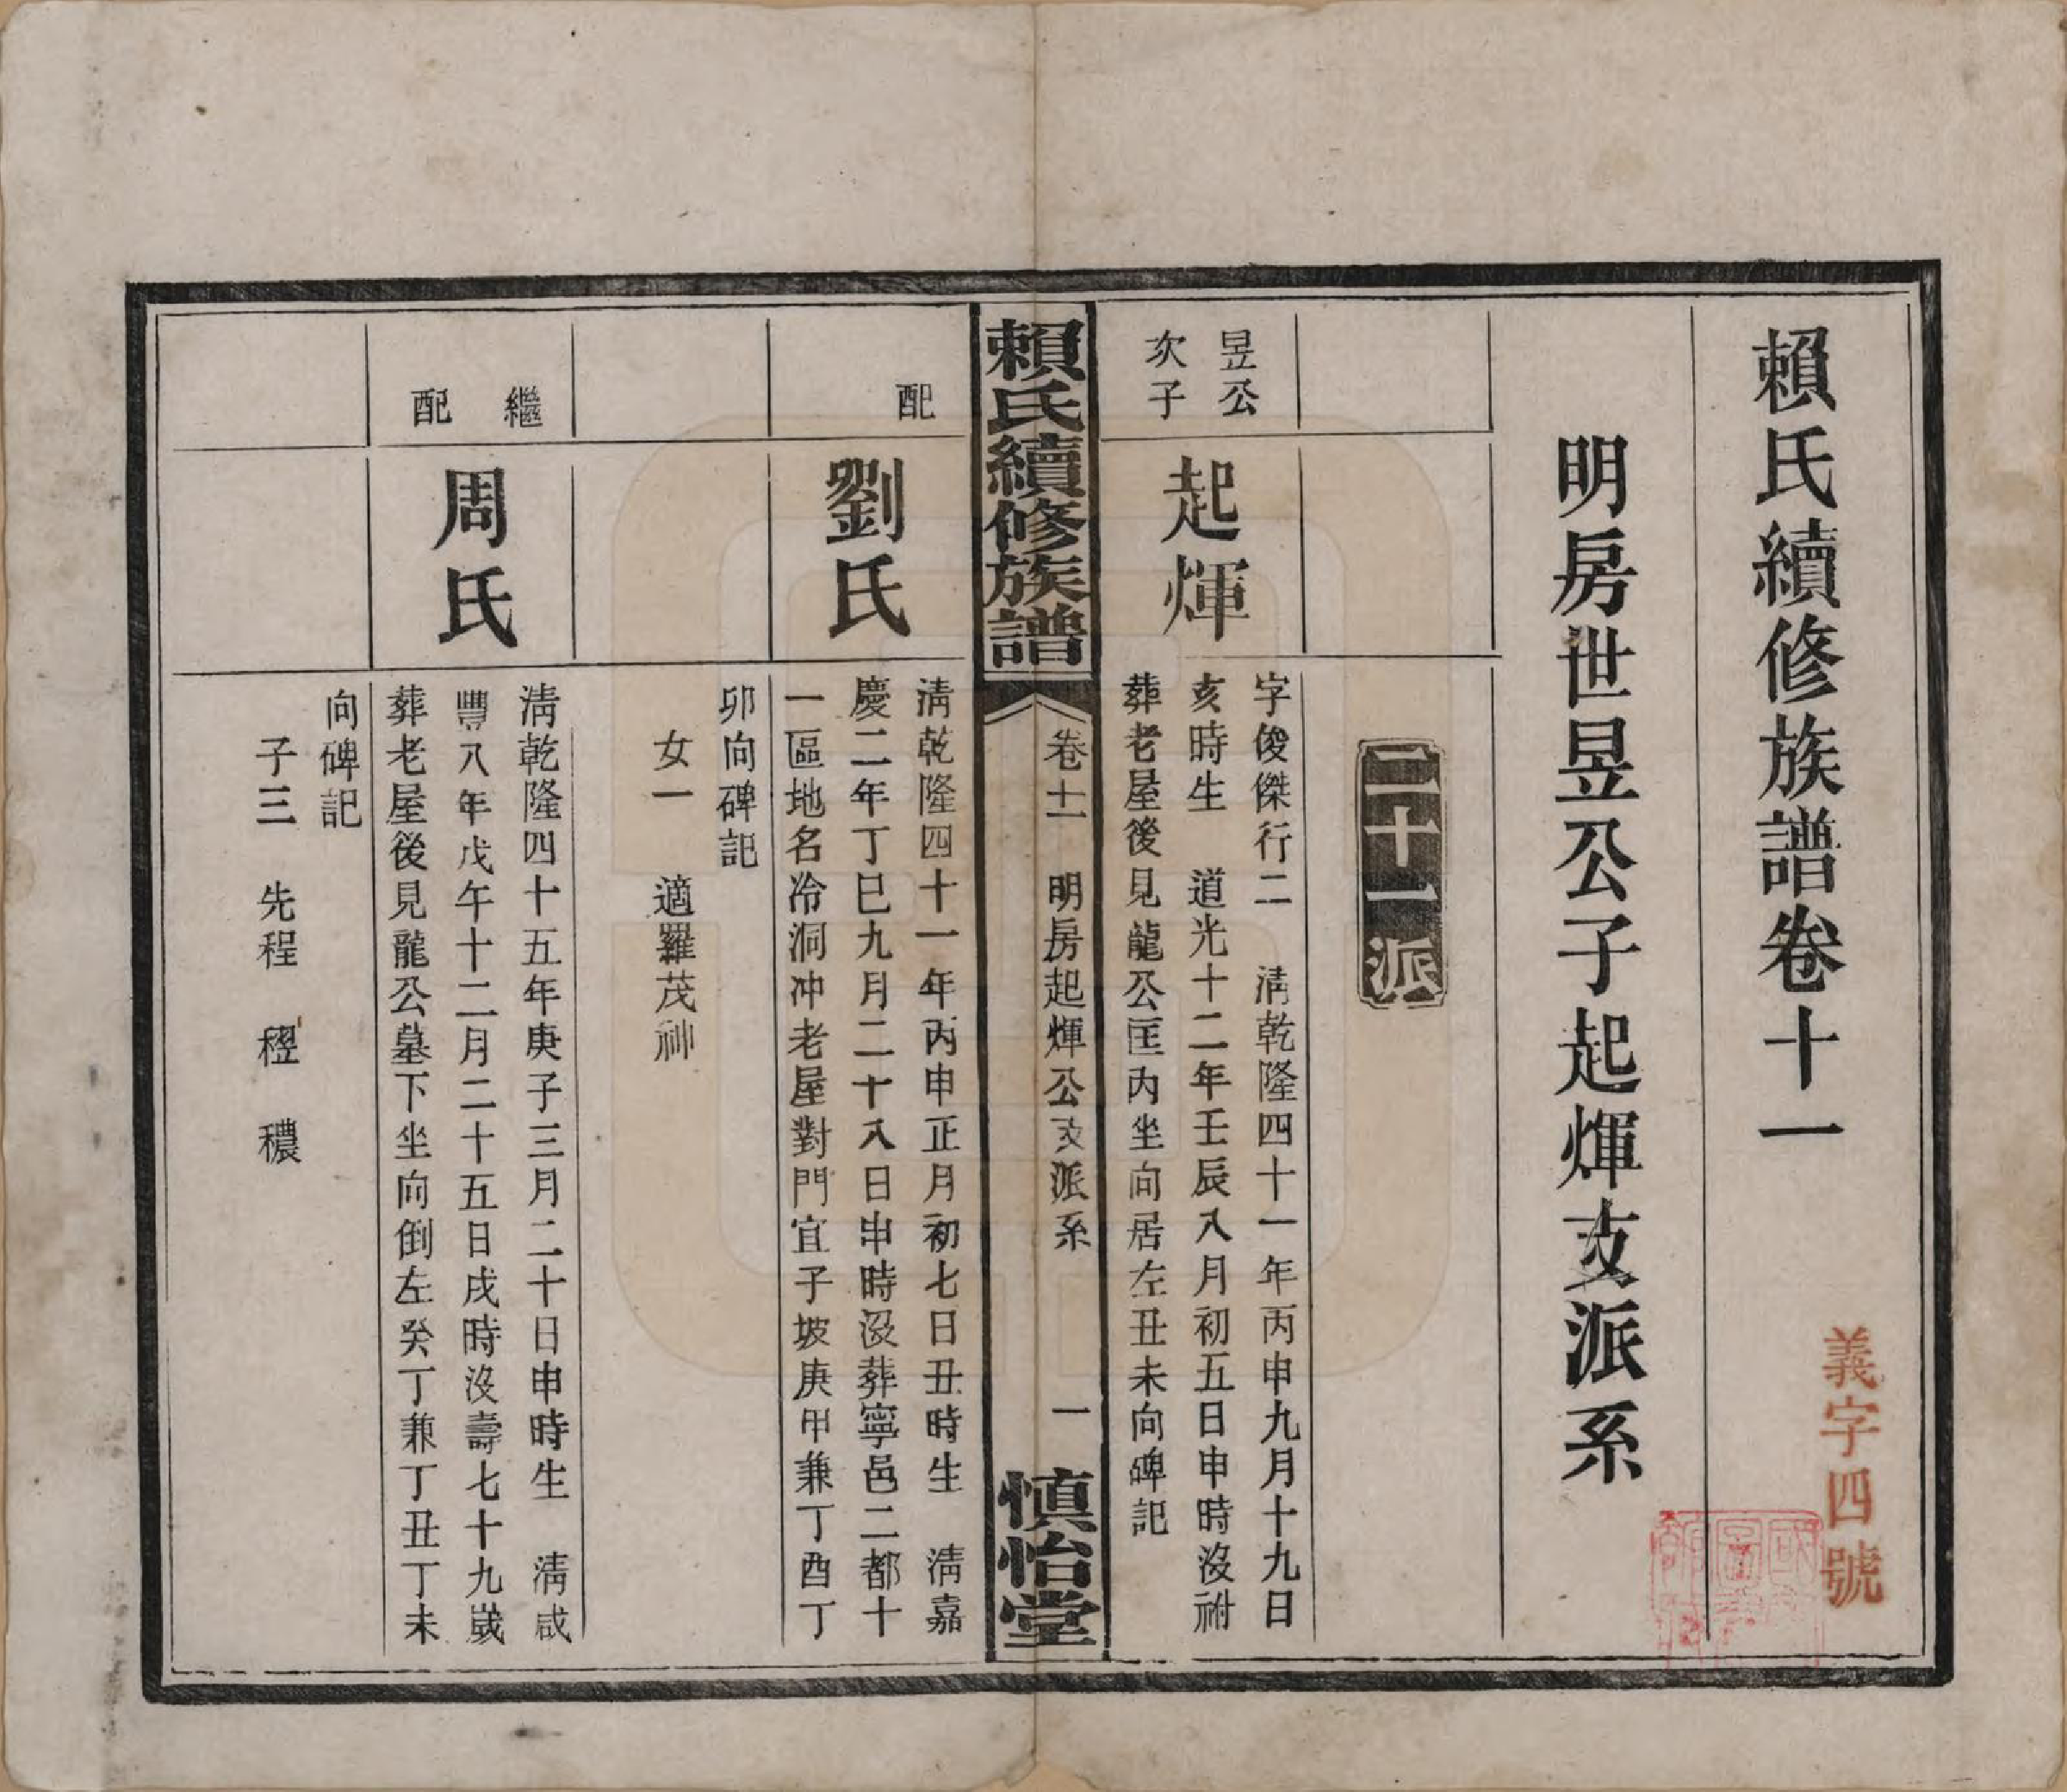 賴氏續修族譜卷十一
義字四號
明房世昱公子起煇支派系
二十一派
昱公
次子
起煇
字俊傑行二　清乾隆四十一年丙申九月十九日
亥時生　道光十二年壬辰八月初五日申時沒祔
葬老屋後見龍公匡內坐向居左丑未向碑記
賴氏續修族譜
卷十一　明房起煇公支派系
一
慎怡堂
配
劉氏
清乾隆四十一年丙申正月初七日丑時生　清嘉
慶二年丁巳九月二十八日申時沒葬寧邑二都十
一區地名冷洞冲老屋對門宜子坡庚甲兼丁酉丁
卯向碑記
女一　適羅茂
繼
配
周氏
清乾隆四十五年庚子三月二十日申時生　清咸
豐八年戊午十二月二十五日戌時沒壽七十九歲
葬老屋後見龍公墓下坐向倒左癸丁兼丁丑丁未
向碑記
子三　先程　穩　穠